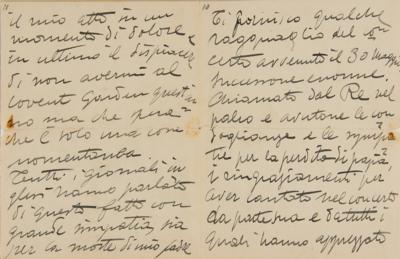 il mio atto in un
momento di dolore
in ultimo il dispiacer
di non avermi al
Covent Garden quest'an
no ma che però
che è solo una cosa
momentanea.
Tutti i giornali in
glesi hanno parlato
di questo fatto con
grande simpatia, sia
per la morte di mio padre
10
Ti fornisco qualche
ragguaglio del
certo avvenuto il 30 Maggio
successone enorme.
Chiamato dal Re nel
palco e avutone le con
doglianze e le simpa
tie per la perdita di papà,
i ringraziamenti per
aver cantato nel concerto
da parte sua e da tutti i
quali hanno apprezzato